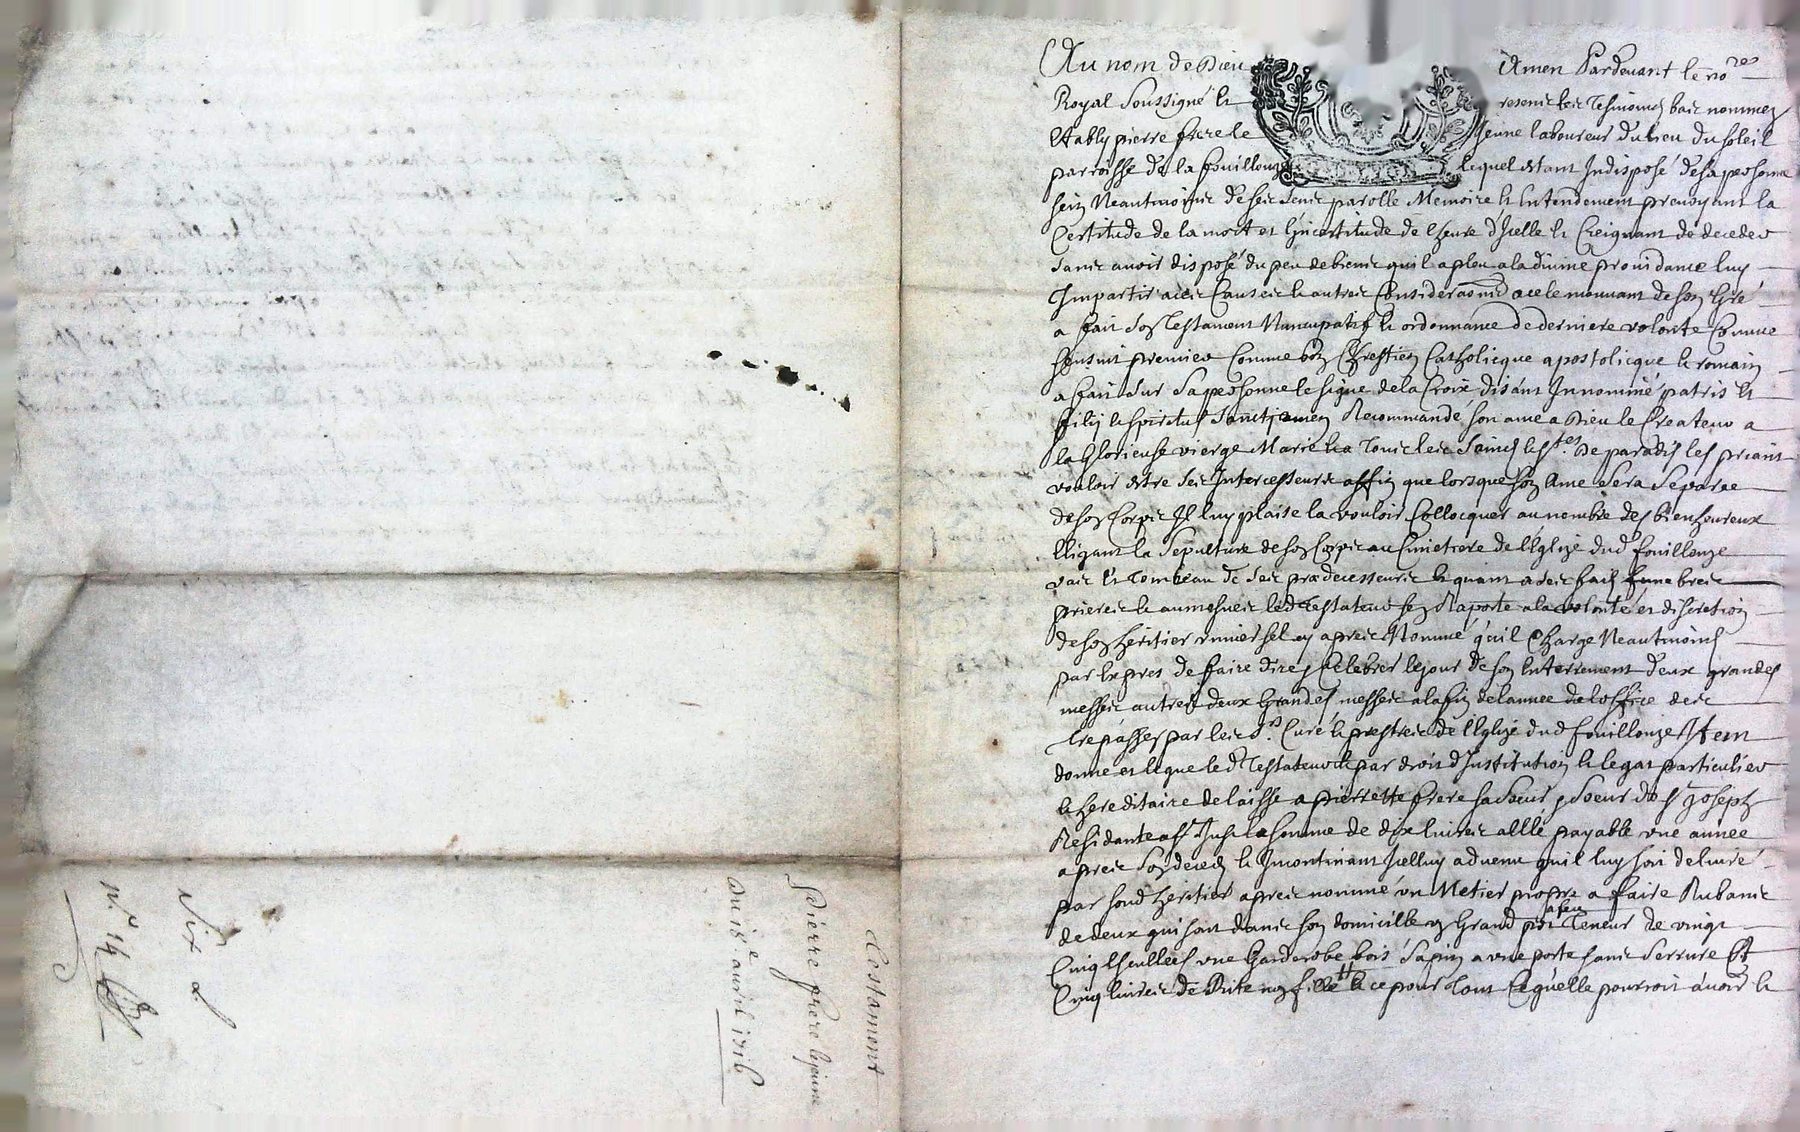 Au nom de Dieu Amen Pardevant le no.re
Royal Soussigné et presens les Tesmoins bas nommez
Estably pierre frere le Jeune laboureur du lieu du soleil
parroisse de la fouillouze lequel estant Indisposé de sa personne
sein Neantmoings de ses sens parolle Memoire et Entendement prevoyant la
Certitude de la mort et Lincertitude de lheure dIcelle et Creignant de deceder
sans avoir disposé du peu de biens quil a pleu a la divine providance luy
Impartir a ces Causes et autres Considerations a ce le mouvant de son Gré
a fait son Testament Nuncupatif et ordonnance de derniere volonté Comme
sensuit premier Comme bon Chrestien Catholicque apostolicque et romain
a fait sur sa personne le signe de la Croix disant In nomine patris et
filij et spiritus sancti amen Recommandé son ame a Dieu le Createur a
la Glorieuse vierge Marie et a Tous les Saincts et S.tes De paradis les priant
vouloir estre ses Intercesseurs affin que lorsque son Ame sera separee
de son Corps Il luy plaise la vouloir Collocquer au nombre des bienheureux
Eligant la sepulture de son Corps au Cimetiere de lEglize dud fouillouze
vas et Tombeau de ses prædecesseurs et quant a ses frais funebres
prieres et aumosnes led Testateur sen Raporte a la volonté et discretion
de son heritier universel cy apres Nommé quil Charge Neantmoins
par Expres de faire dire et Celebrer le jour de son Enterrement deux grandes
messes autres deux Grandes messes a la fin de lannee de loffice des
trepassez par les S.rs Curé et prestres de lEglize dud fouillouze Item
donne et legue led Testateur et par droit dInstitution et legat particulier
et hereditaire delaisse a pierrette frere sa soeur soeur de St Joseph
Residante a St Just la somme de dix livres Elle payable une année
apres son deces et Incontinant Icelluy advenu quil luy soit delivré
par soud heritier apres nommé un Metier propre a faire Rubans
de deux qui sont dans son domicille un Grand pot Teneur de vingt
a feu
Cinq Escuelles une Garderobe bois sapin a une porte sans serrure Et
Cinq livres de Rite non fillé et ce pour Tout Ce quelle pourroit avoir et
Testament
Pierre frere le jeune
du 18e avril 1716
Six d
n.o 14